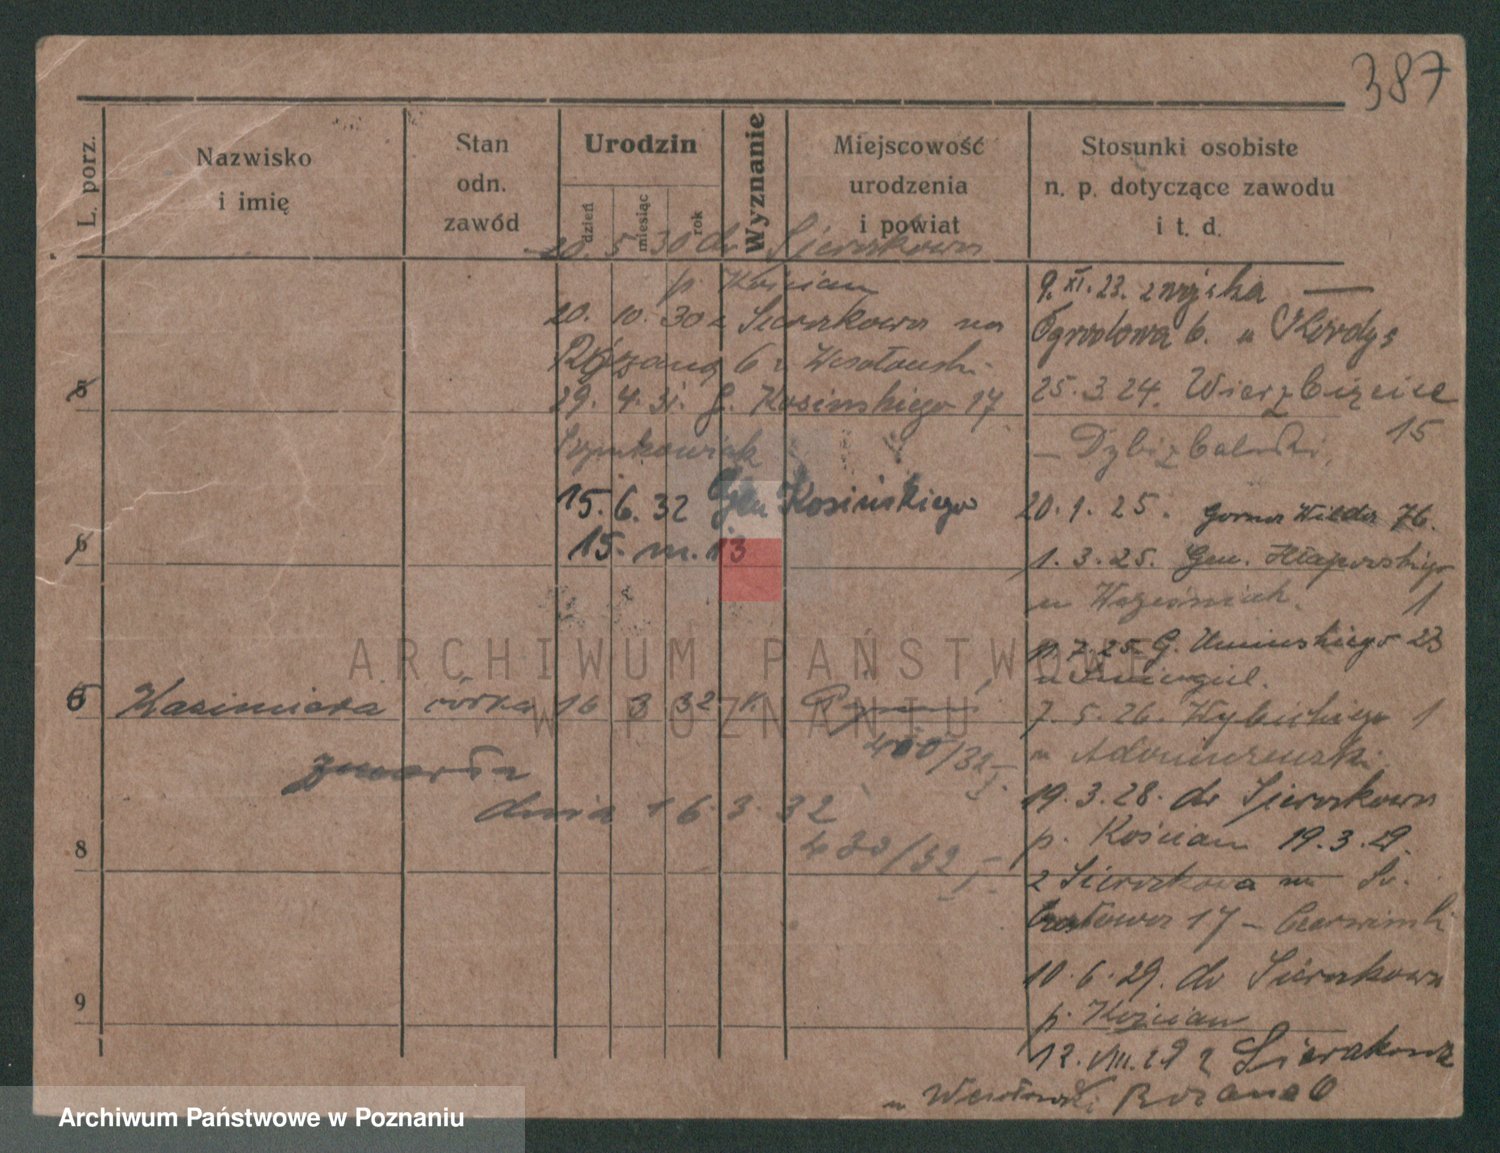 387
L. porz.
Nazwisko
i imię
Stan
odn.
zawód
Urodzin
dzień
miesiąc
rok
Wyznanie
Miejscowość
urodzenia
i powiat
Stosunki osobiste
n. p. dotyczące zawodu
i t. d.
20. 5. 30 do Sierakowa
p. Kościan
20. 10. 30 z Sierakowa na
6
29. 4. 31. G. Kosińskiego 17
15. 6. 32 Gen Kosińskiego
15. m. 13
5
6
6 Kazimiera córka 16 3 32 k Poznań
400/32
zmarła
dnia 16. 3. 32
8
430/32
9
9. XI. 23. z wojska —
Ogrodowa 6. u
25. 3. 24. Wierzbięcice
15
20. 1. 25. Gorna Wilda 76.
1. 3. 25. Gen. Chłapowskiego
u Woźniak. 1
11. 7. 25. G. Umińskiego 23
u
7. 5. 26. Wybickiego 1
u
19. 3. 28. do Sierakowa
p. Kościan 19. 3. 29.
z Sierakowa na
17 –
10. 6. 29. do Sierakowa
p. Kościan
12. VIII. 29 z Sierakowa
u Wesołowski Rozana 6
ARCHIWUM PAŃSTWOWE
W POZNANIU
Archiwum Państwowe w Poznaniu